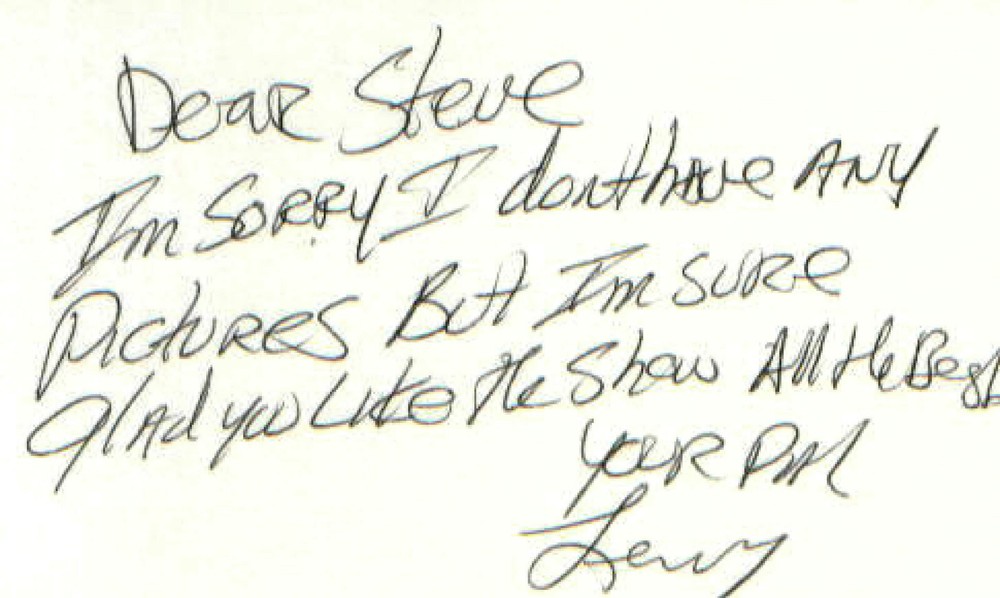 Dear Steve
I'm SORRY I dont have ANY
Pictures But I'm sure
glAd you Like the Show All the Best
YOUR PAL